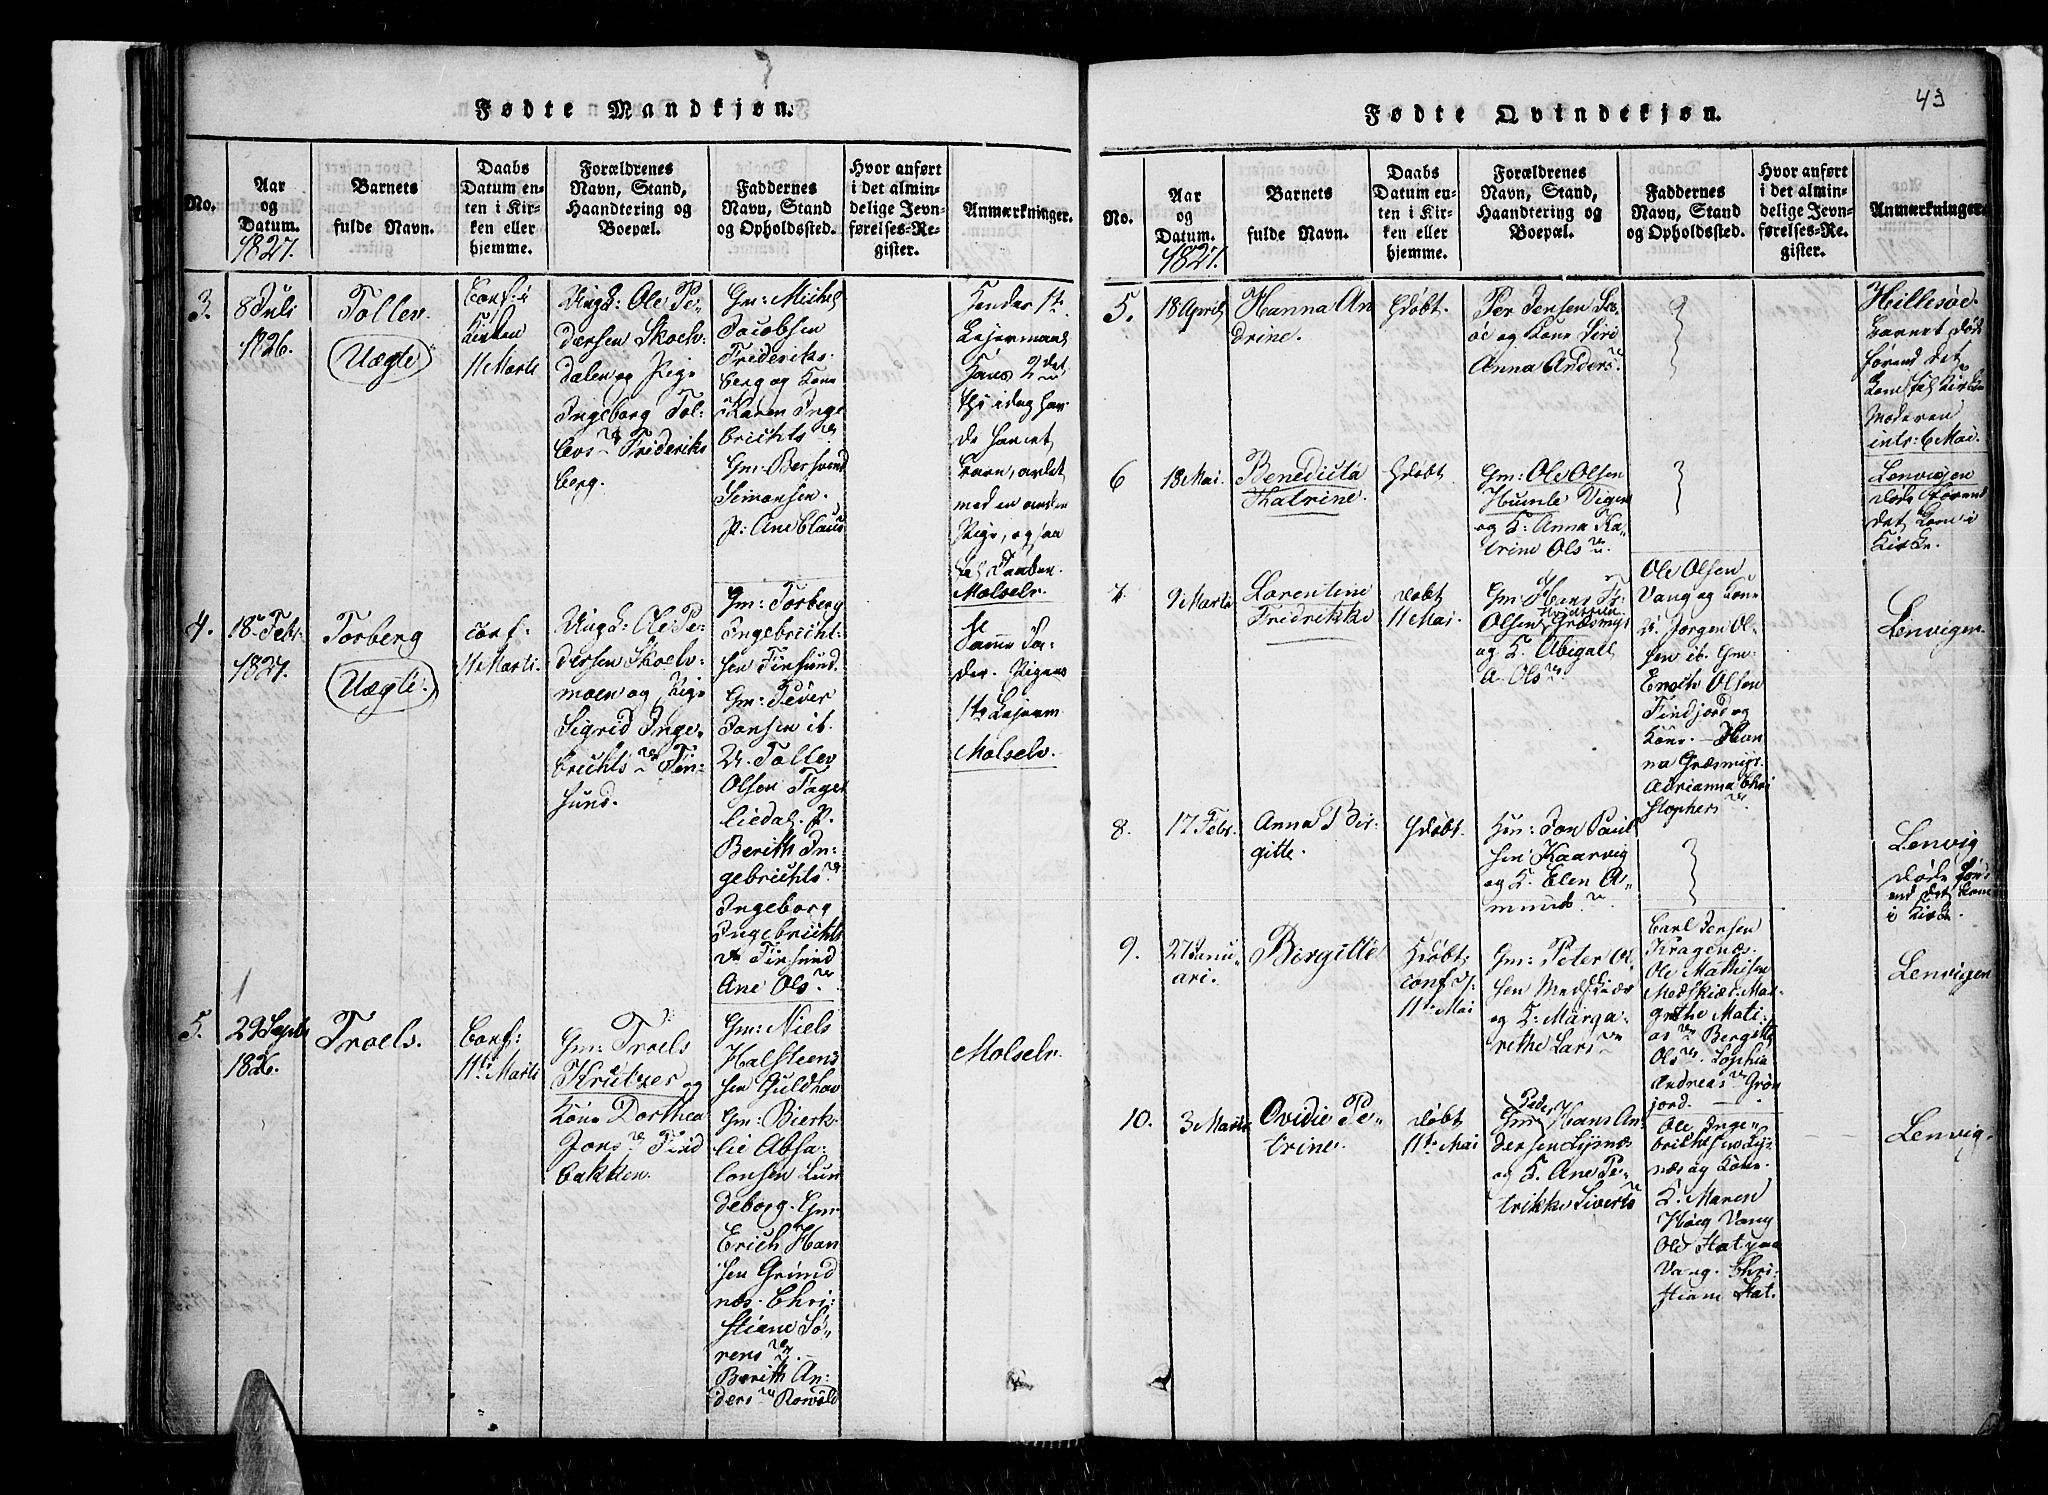 Fødte Mandkjøn.
No.
Aar
og
Datum.
1827.
Barnets
fulde Navn.
Daabs
Datum en-
ten i Kir-
ken eller
hjemme.
Forældrenes
Navn, Stand,
Haandtering og
Boepæl.
Faddernes
Navn, Stand
og Opholdssted.
Hvor anført
i det almin-
delige Jevn-
førelses-Re-
gister.
Anmærkninger.
3.
8 Juli
1826.
Tollev.
Uægte
Conf: i
Kirken
11 Marti
Ungk: Ole Pe-
dersen Skoelv-
dalen og Pige
Ingeborg Tol-
levs Frideriks
berg.
Gm: Michel
Jacobsen
Frideriks-
berg og Kone
Karen Inge
brichts
Gm: Bersvend
Simonsen.
P: Ane Claus
Hendes 1te
Leiermaal
Hans 2det
thi idag hav-
de havet
Barn, avlet
med en anden
Pige, og saa
Malselv.
4.
18 Febr.
1827.
Torberg
Uægte.
conf:
11 Marti.
Ungk: Ole Pe-
dersen Skoelv-
moen og Pige
Sigrid Inge-
brichts Fin-
sund.
Gm: Torberg
Ingebricht-
sen Finsund.
Gm: Peder
Jonsen it.
U. Tollev
Olsen Fager
liedal. P.
Berith In-
gebrichts.
Ingeborg
Ingebrichts
Finsund
Ane Ols.
Samme Fa-
der. Pigens
1te Leierm.
Malselv.
5.
29 Septb
1826.
Troels.
Conf:
11te Marti
Gm: Troels
Krütner og
Kone Dorthea
Jons Find
bakken.
Gm: Niels
Halsteens
sen Guldhav
Gm: Bierk-
lie Absa-
lonsen Lun
deborg. Gm.
Erich Han
sen Grund
næs. Chri-
stiane Sö-
rens
Berith An-
ders Rowold
43
Fødte Qvindekjøn.
No.
Aar
og
Datum.
1827.
Barnets
fulde Navn.
Daabs
Datum en-
ten i Kir-
ken eller
hjemme.
Forældrenes
Navn, Stand,
Haandtering og
Boepæl.
Faddernes
Navn, Stand
og Opholdssted.
Hvor anført
i det almin-
delige Jevn-
førelses-Re-
gister.
Anmærkninger.
5.
18 April
Hanna An
drine.
Hdøbt
Per Jensen
og Kone Siri
Anna Anders
Hillesøe.
Barnet døde
førend det
kom til Kirke
Moderen
intr: 6 Mai.
6
18 Mai.
Benedicta
Katrine.
Hdøbt
Gm: Ole Olsen
Humle Vigen
og K: Anna Ka-
trine Ols
Lenvigen
døde førend
det kom i
Kirke.
7
9 Marti
Lorentine
Fridrikke
døbt
11 Mai.
Gm: Hans
Olsen Græsmyr
og K. Abigael
A. Ols
Ole Olsen
Vang og Kone
U. Jørgen Ol-
sen it. Gm.
Enoch Olsen
Findjord og
Kone. Han
na Græsmyr.
Adrianna Chri
stophers
Lenvigen.
8.
17 Febr.
Anna Bir-
gitte.
Hdøbt.
Jon Paul
sen Kaarvig
og K. Elen As-
munds
Lenvig
døde før-
end det kom
i Kirk.
9.
27 Janu-
ari.
Birgitte
Hdøbt
conf d.
11te Mai
Gm: Peter Ol
sen Medskiær
og K: Marga-
rethe Lars
Carl Jensen
Kragenæs.
Ole Mathisen
Medskiær. Mar-
grethe Mati-
as Bergitte
Ols. Sophia
Andreas Grön
jord.
Lenvigen
10.
3 Marti
Ovidie Pe-
trine.
døbt
11te Mai
Peder
Gm: Hans An-
dersen Lysnæs
og K. Ane Pe-
trikke Siverts
Ole Inge-
brichtsens Lys-
næs og Kone.
K. Maren
Høeg Vang
Ole
Vang. Chri-
stiane
Lenvig.